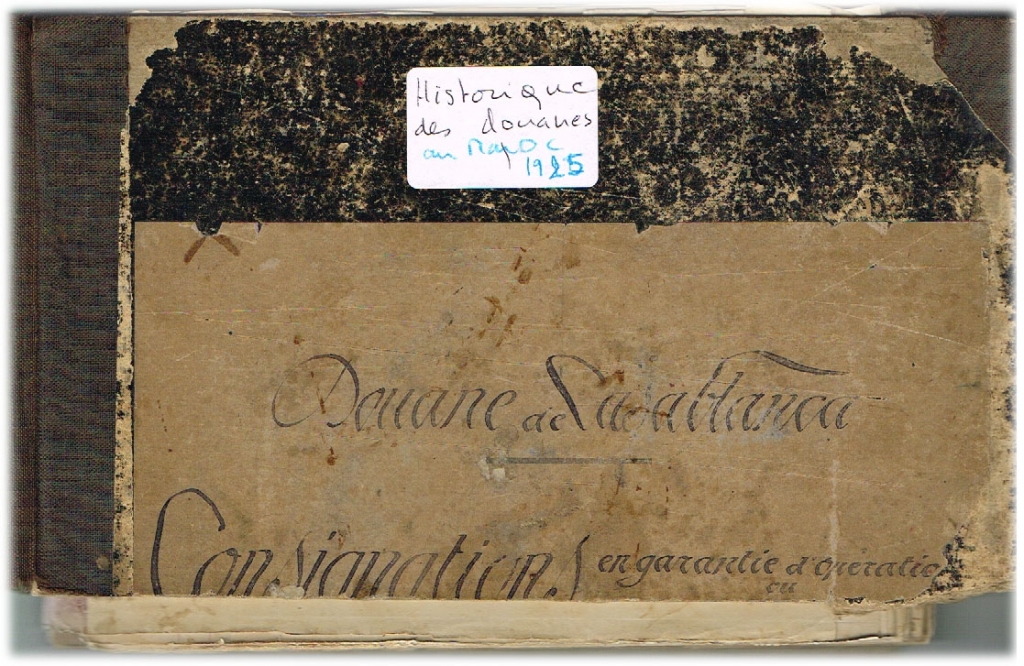 Historique
des douanes
au Maroc
1925
Douane de Casablanca
Consignations en garantie d'opératio
ou